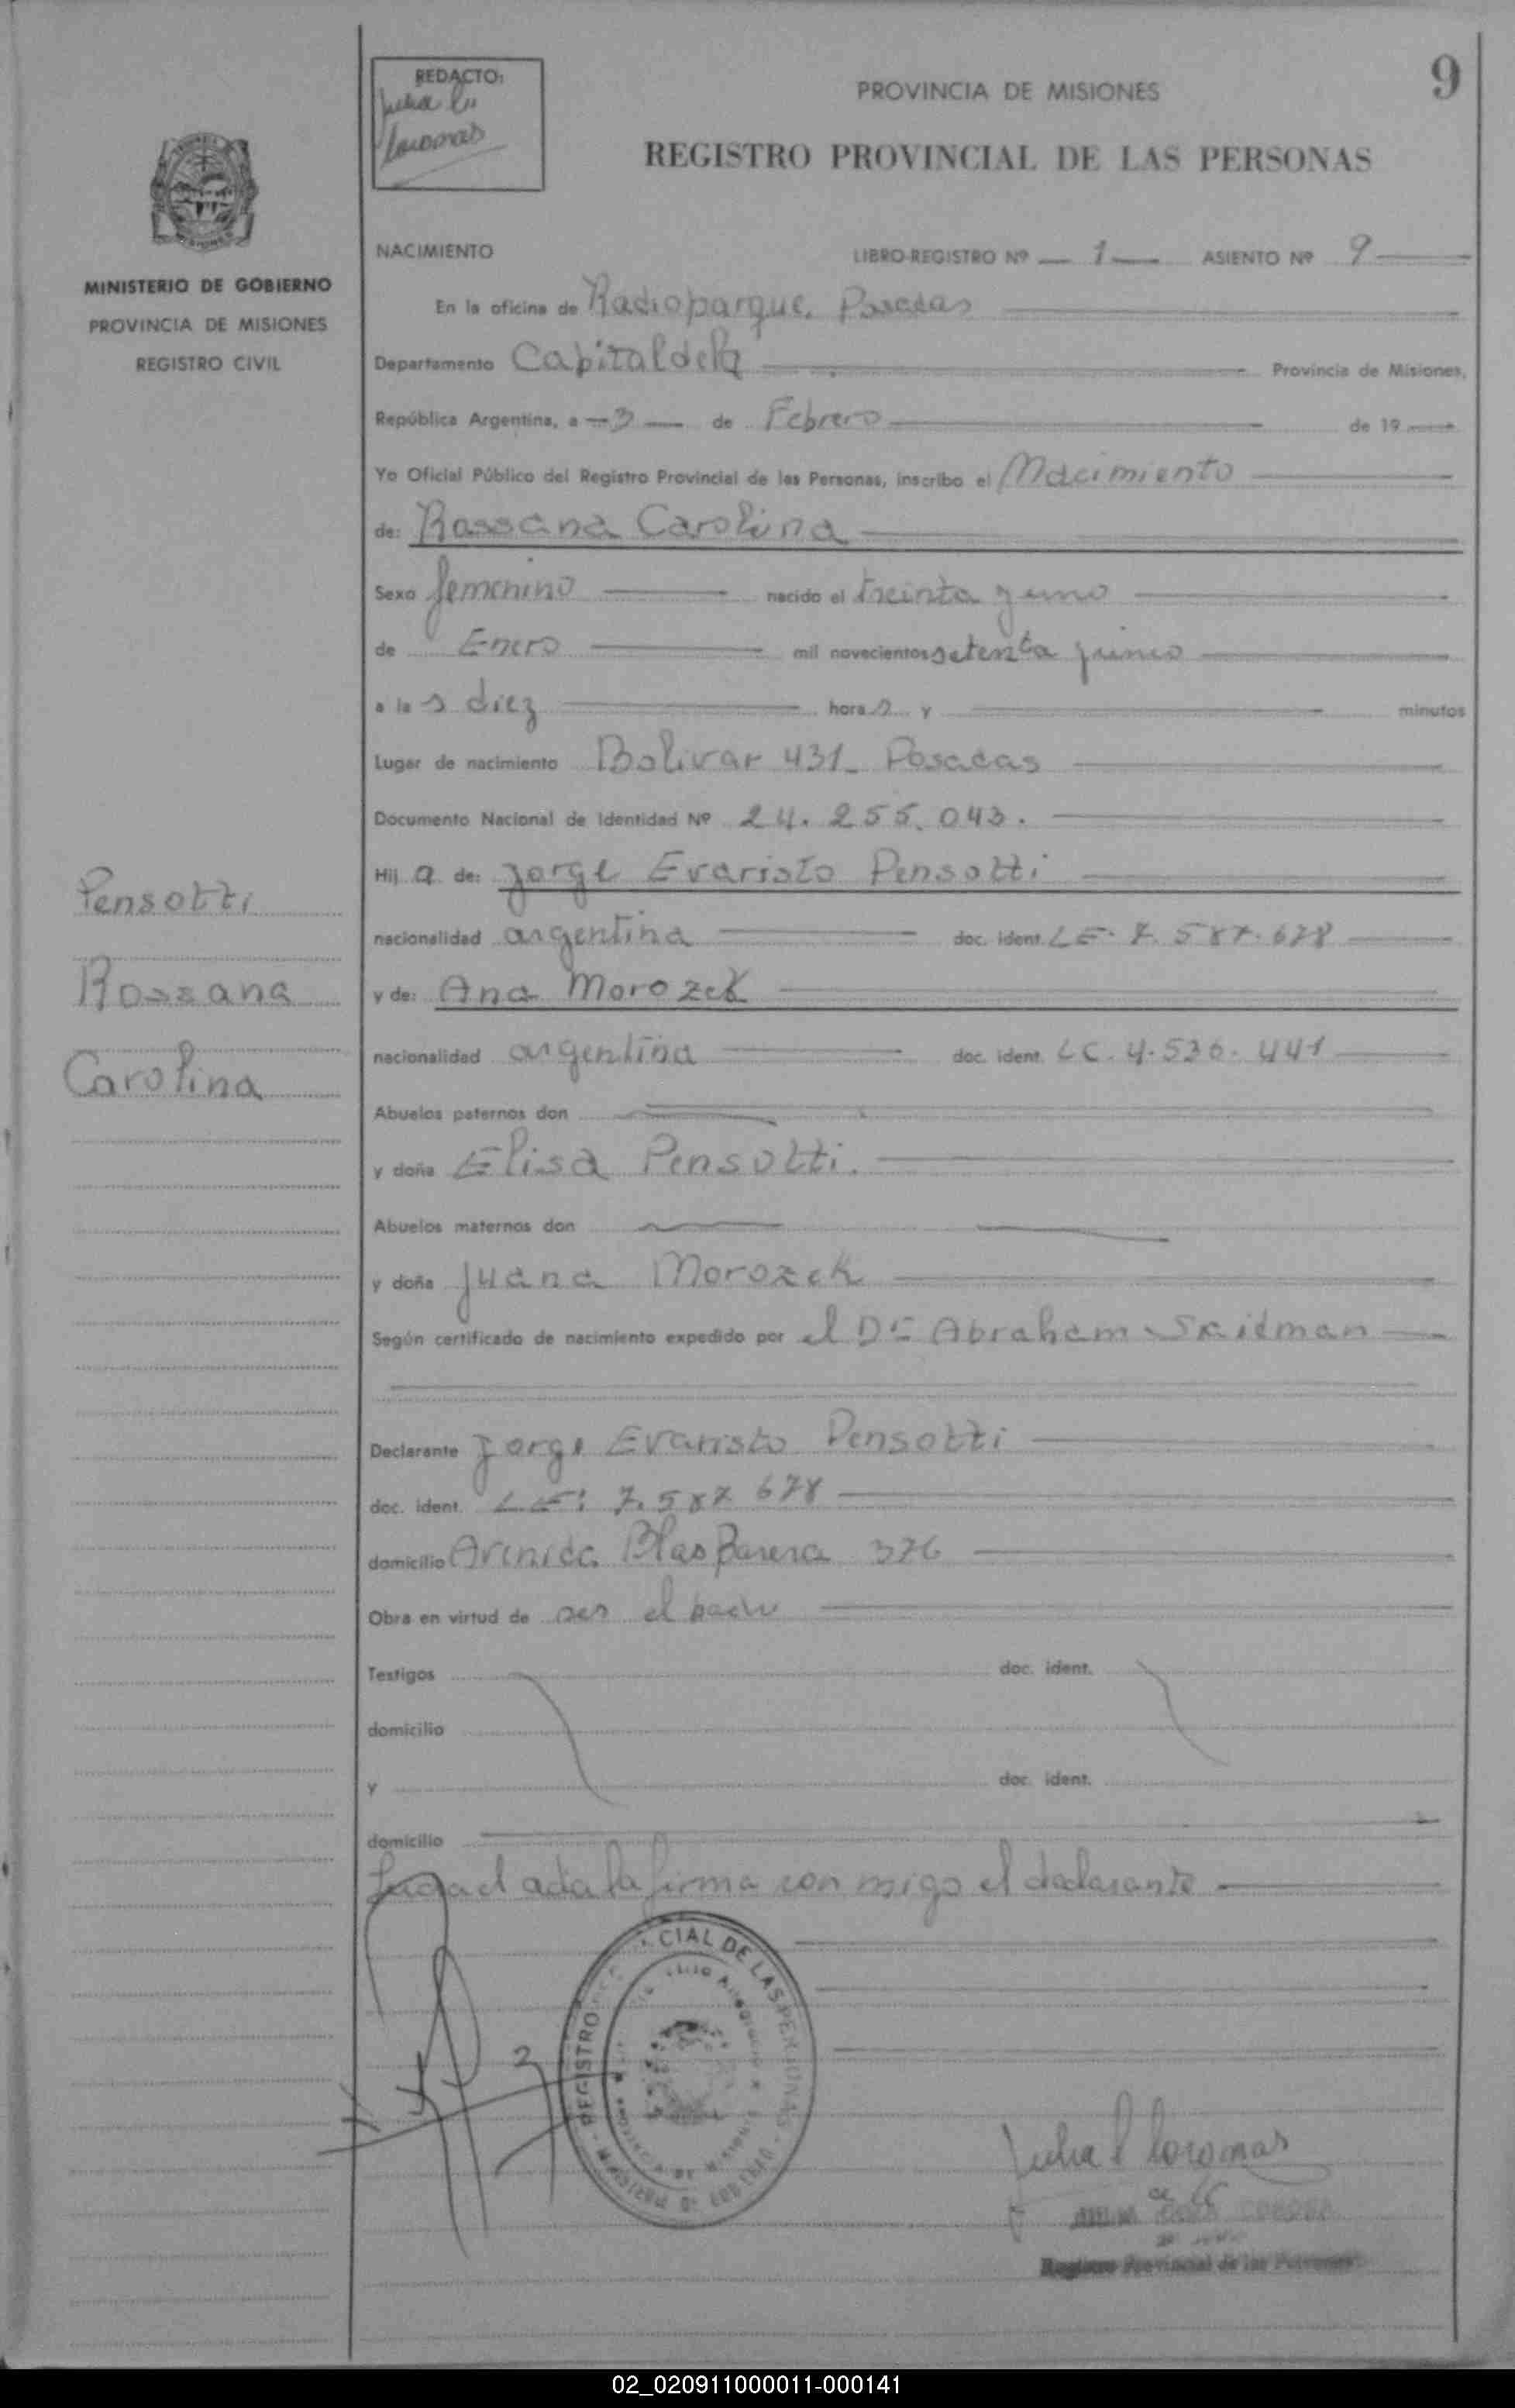 REDACTO:
PROVINCIA DE MISIONES
9
REGISTRO PROVINCIAL DE LAS PERSONAS
MINISTERIO DE GOBIERNO
PROVINCIA DE MISIONES
REGISTRO CIVIL
NACIMIENTO LIBRO-REGISTRO Nº 1 ASIENTO Nº 9
En la oficina de Radioparque. Posadas
Departamento Capital de la Provincia de Misiones,
República Argentina, a 3 de Febrero de 19
Yo Oficial Público del Registro Provincial de las Personas, inscribo el Nacimiento
de: Rossana Carolina
Sexo femenino nacido el treinta y uno
de Enero mil novecientos setenta y uno
a las diez horas y minutos
Lugar de nacimiento Bolivar 431_ Posadas
Documento Nacional de Identidad Nº 24.255.043.
Hija de: Jorge Evaristo Pensotti
nacionalidad argentina doc. ident. LE. 7.587.678
y de: Ana Morozek
nacionalidad argentina doc. ident. LC. 4.536.441
Abuelos paternos don
y doña Elisa Pensotti.
Abuelos maternos don
y doña Juana Morozek
Según certificado de nacimiento expedido por el Dr Abraham
Declarante Jorge Evaristo Pensotti
doc. ident. LE: 7.587.678
domicilio Avenida Blas Parera 376
Obra en virtud de ser el padre
Testigos doc. ident.
domicilio
y doc. ident.
domicilio
acta la firma con migo el declarante
Pensotti
Rossana
Carolina
REGISTRO CIAL DE LAS PERSONAS
Registro Provincial de las Personas
02_020911000011-000141